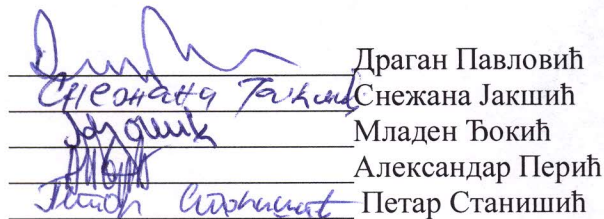 Драган Павловић
Снежана Јакшић Снежана Јакшић
Младен Ђокић
Александар Перић
Петар Станишић Петар Станишић